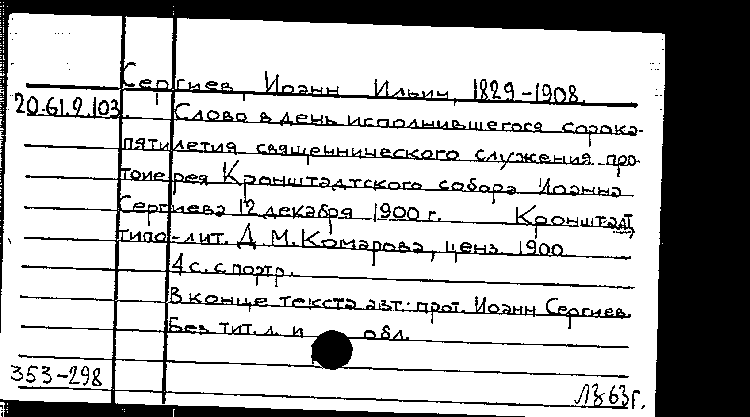 Сергиев, Иоанн Ильич, 1829-1908.
20.61.9.103. Слово в день исполнившегося сорока-
пятилетия священнического служения про-
тоиерея Кронштадтского собора Иоанна
Сергиева 12 декабря 1900 г. Кронштадт
типо-лит. Д. М. Комарова, ценз. 1900
4 с. с портр.
В конце текста авт.: прот. Иоанн Сергиев.
Без тит. л. и обл.
353-298